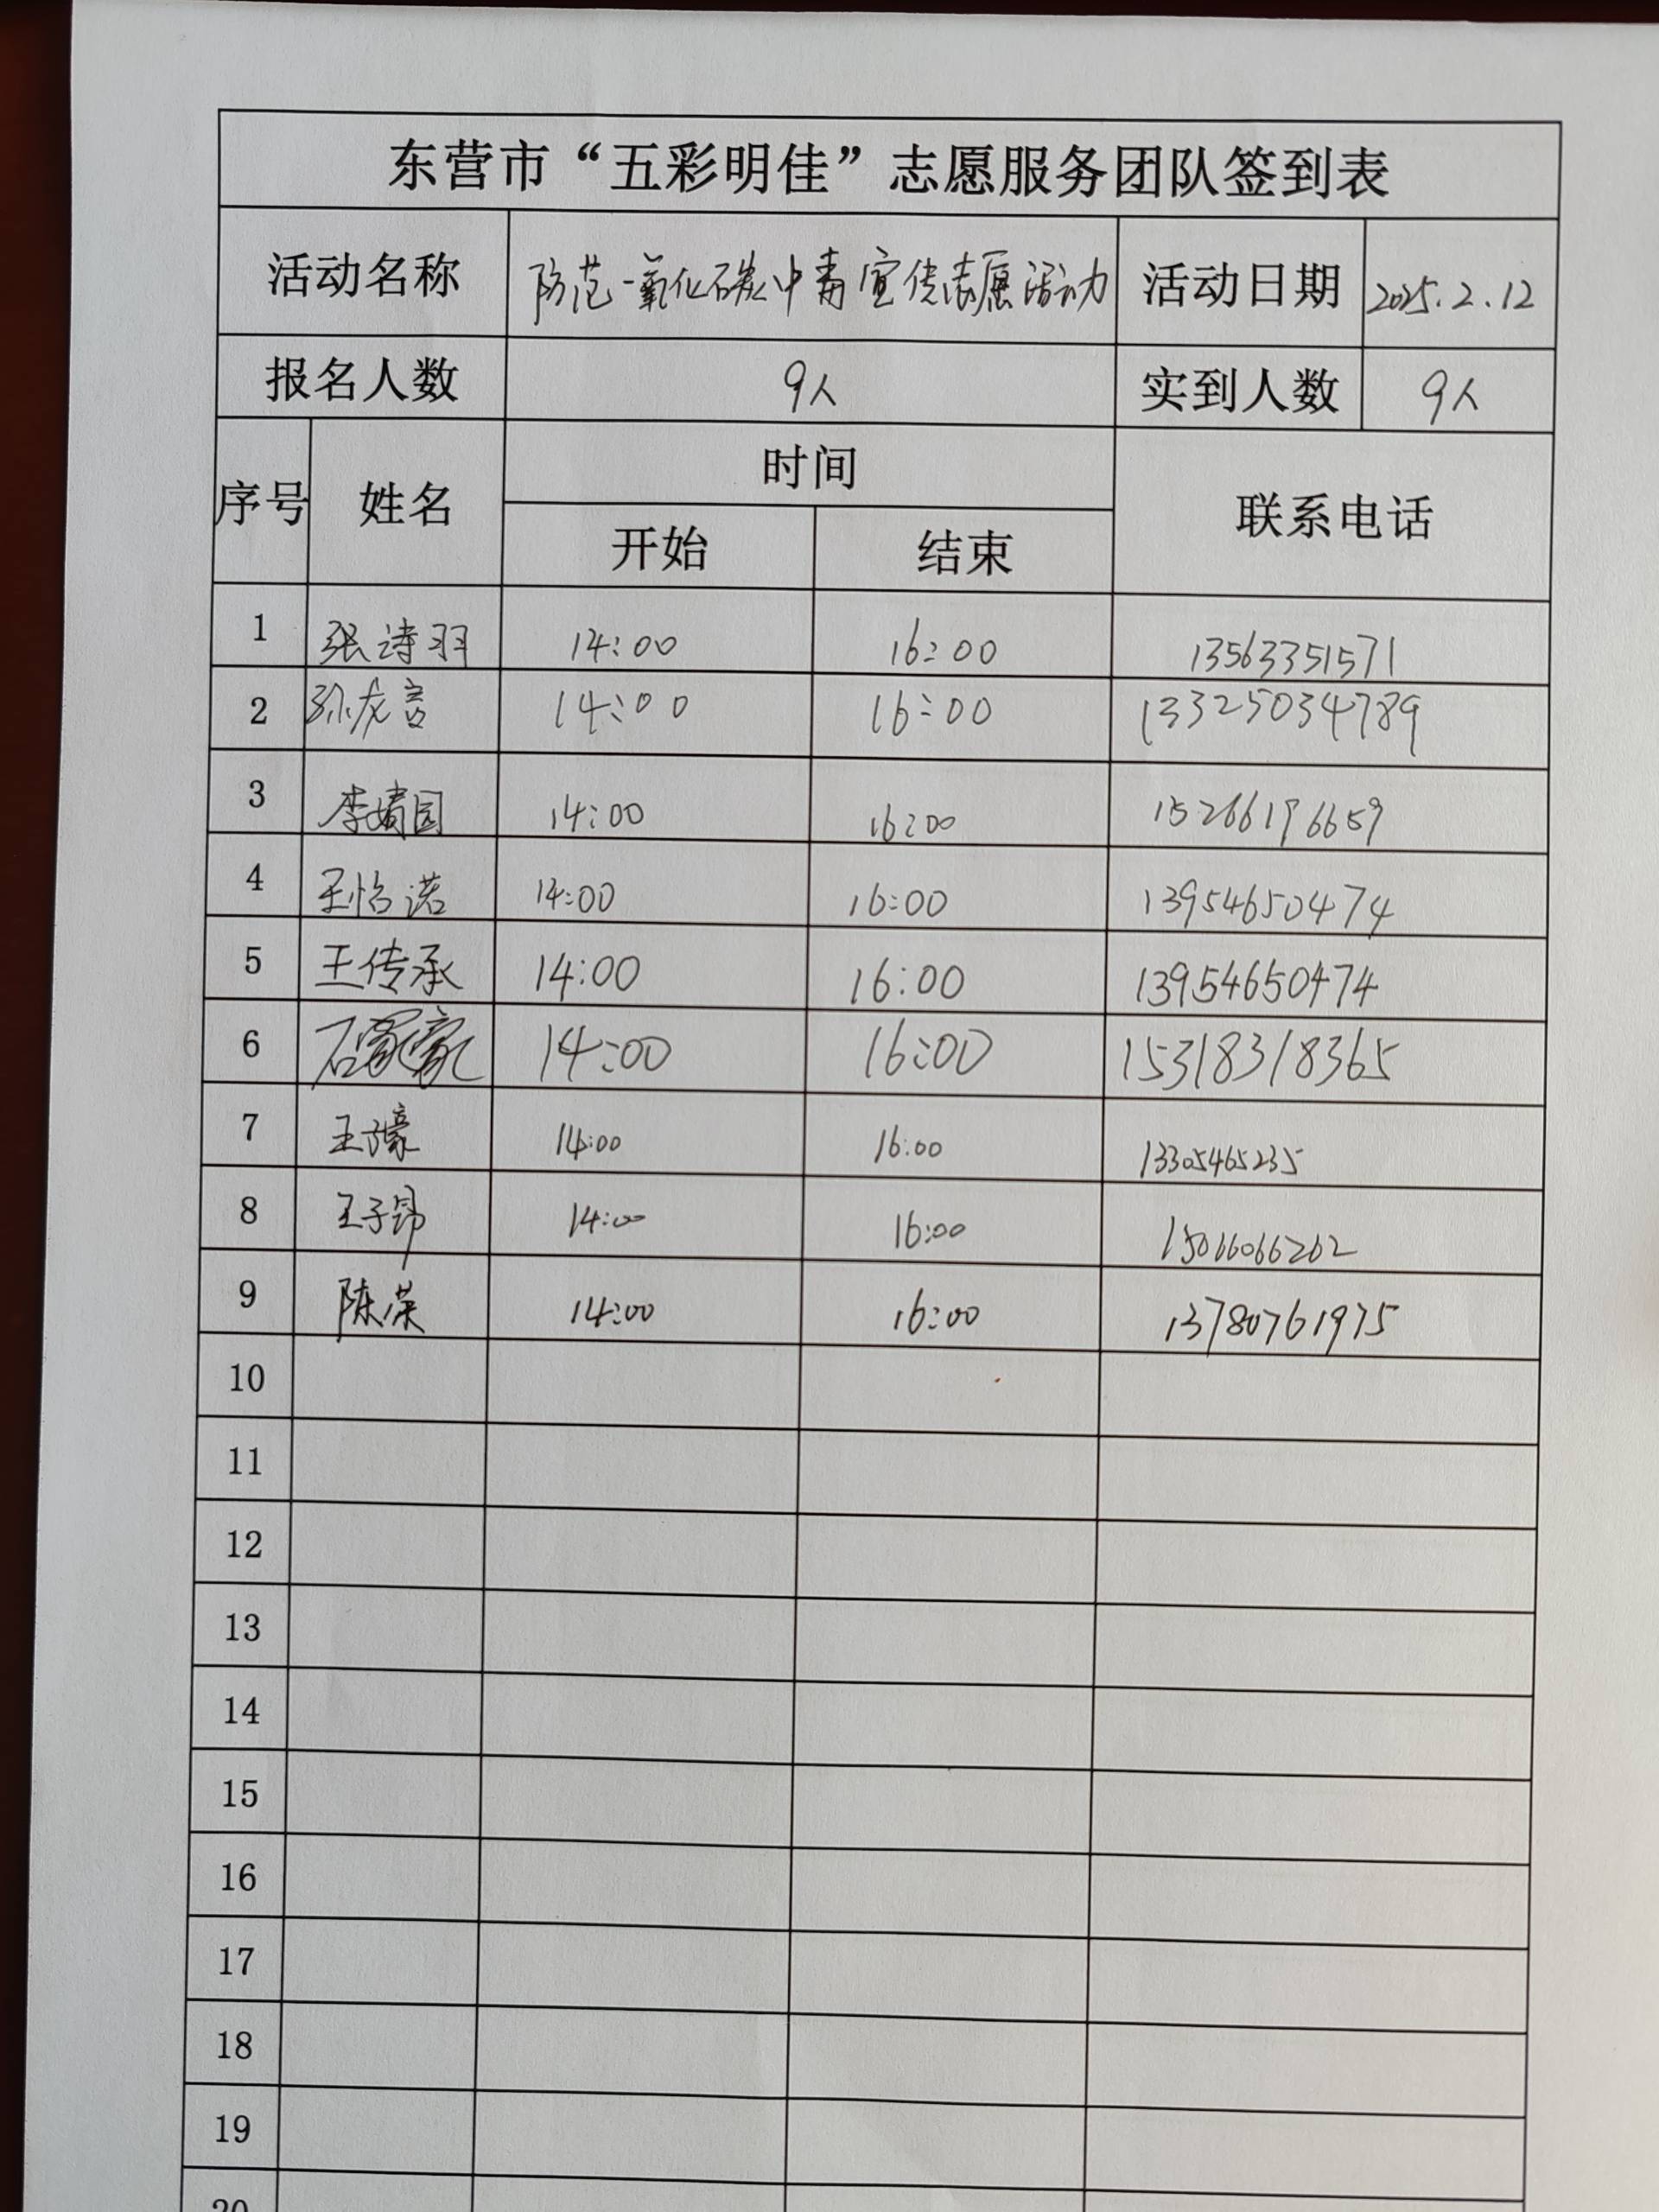 东营市“五彩明佳”志愿服务团队签到表
活动名称 防范一氧化碳中毒宣传志愿活动 活动日期 2025.2.12
报名人数 9人 实到人数 9人
序号 姓名 时间 联系电话
开始 结束
1 张诗羽 14:00 16:00 13563351571
2 孙龙言 14:00 16:00 13325034789
3 李婧园 14:00 16:00 15266196659
4 王怡诺 14:00 16:00 13954650474
5 王传承 14:00 16:00 13954650474
6 石家豪 14:00 16:00 15318318365
7 王子豪 14:00 16:00 13305465235
8 王子昂 14:00 16:00 15066066262
9 陈荣 14:00 16:00 13780761975
10
11
12
13
14
15
16
17
18
19
20